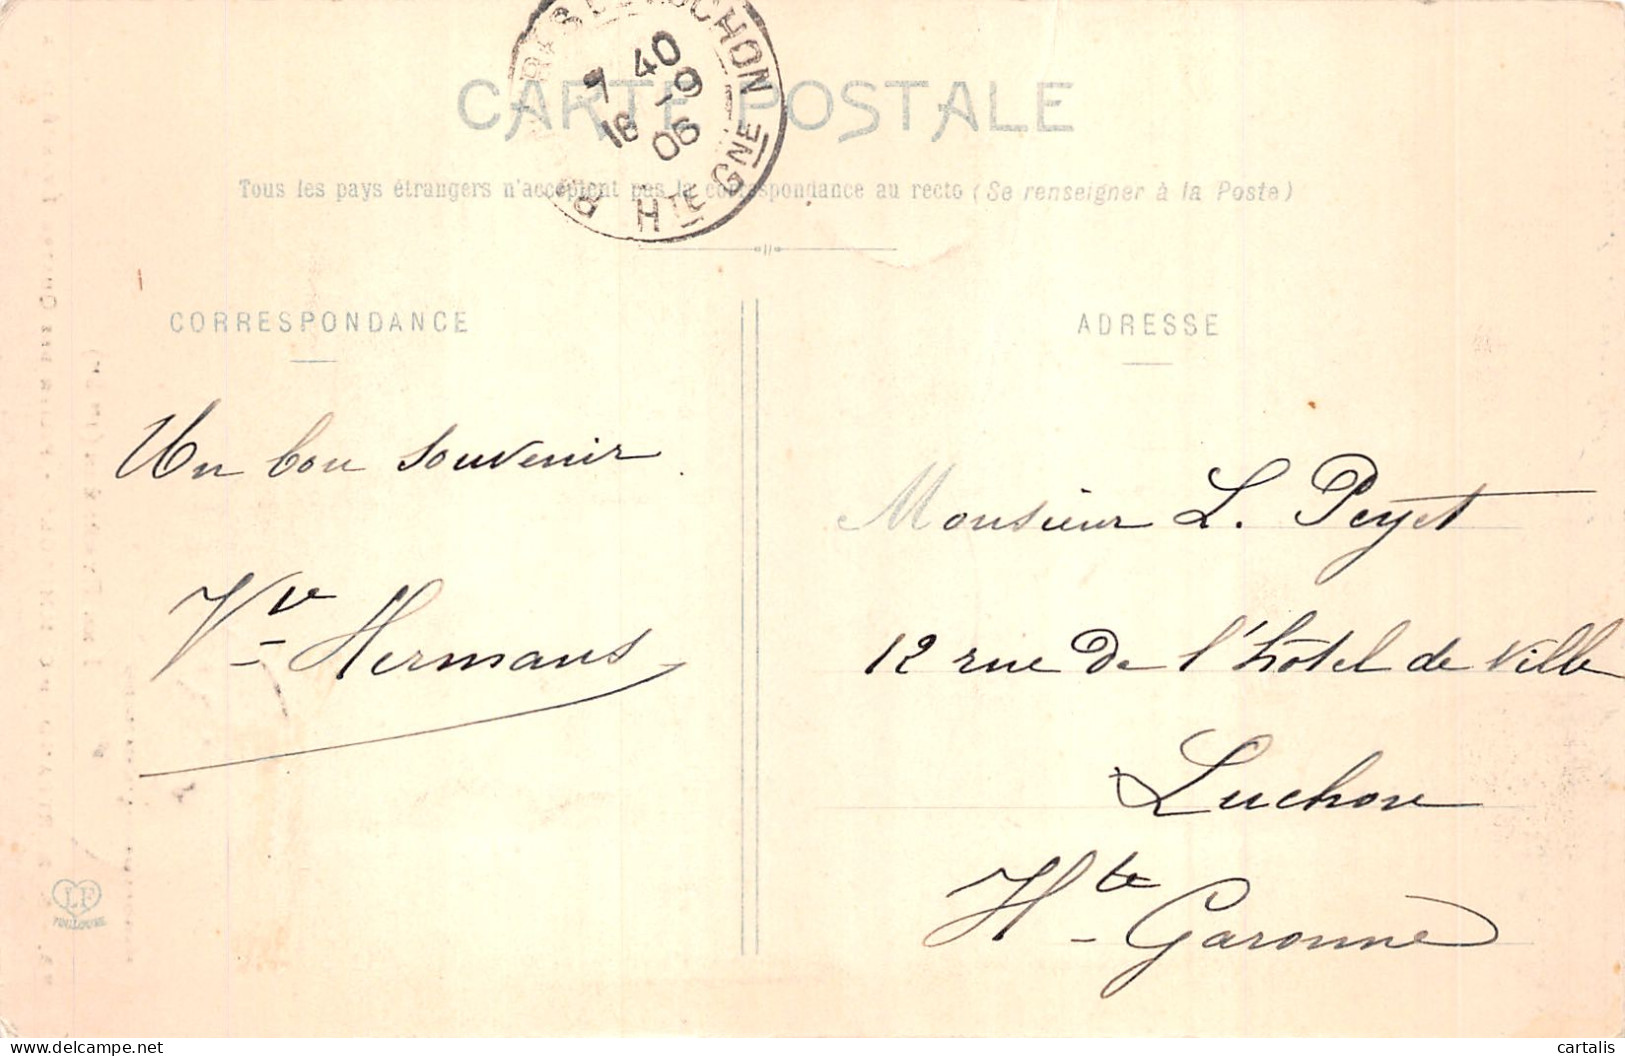 CARTE POSTALE
Tous les pays étrangers n'acceptent pas la correspondance au recto (Se renseigner à la Poste)
LUCHON
7 40
18 -9
06
HTE GNE
CORRESPONDANCE
ADRESSE
Un bon souvenir
Vve Hermans
Monsieur L. Peyet
12 rue de l'hôtel de ville
Luchon
Hte Garonne
LF
TOULOUSE
delcampe.net
cartalis